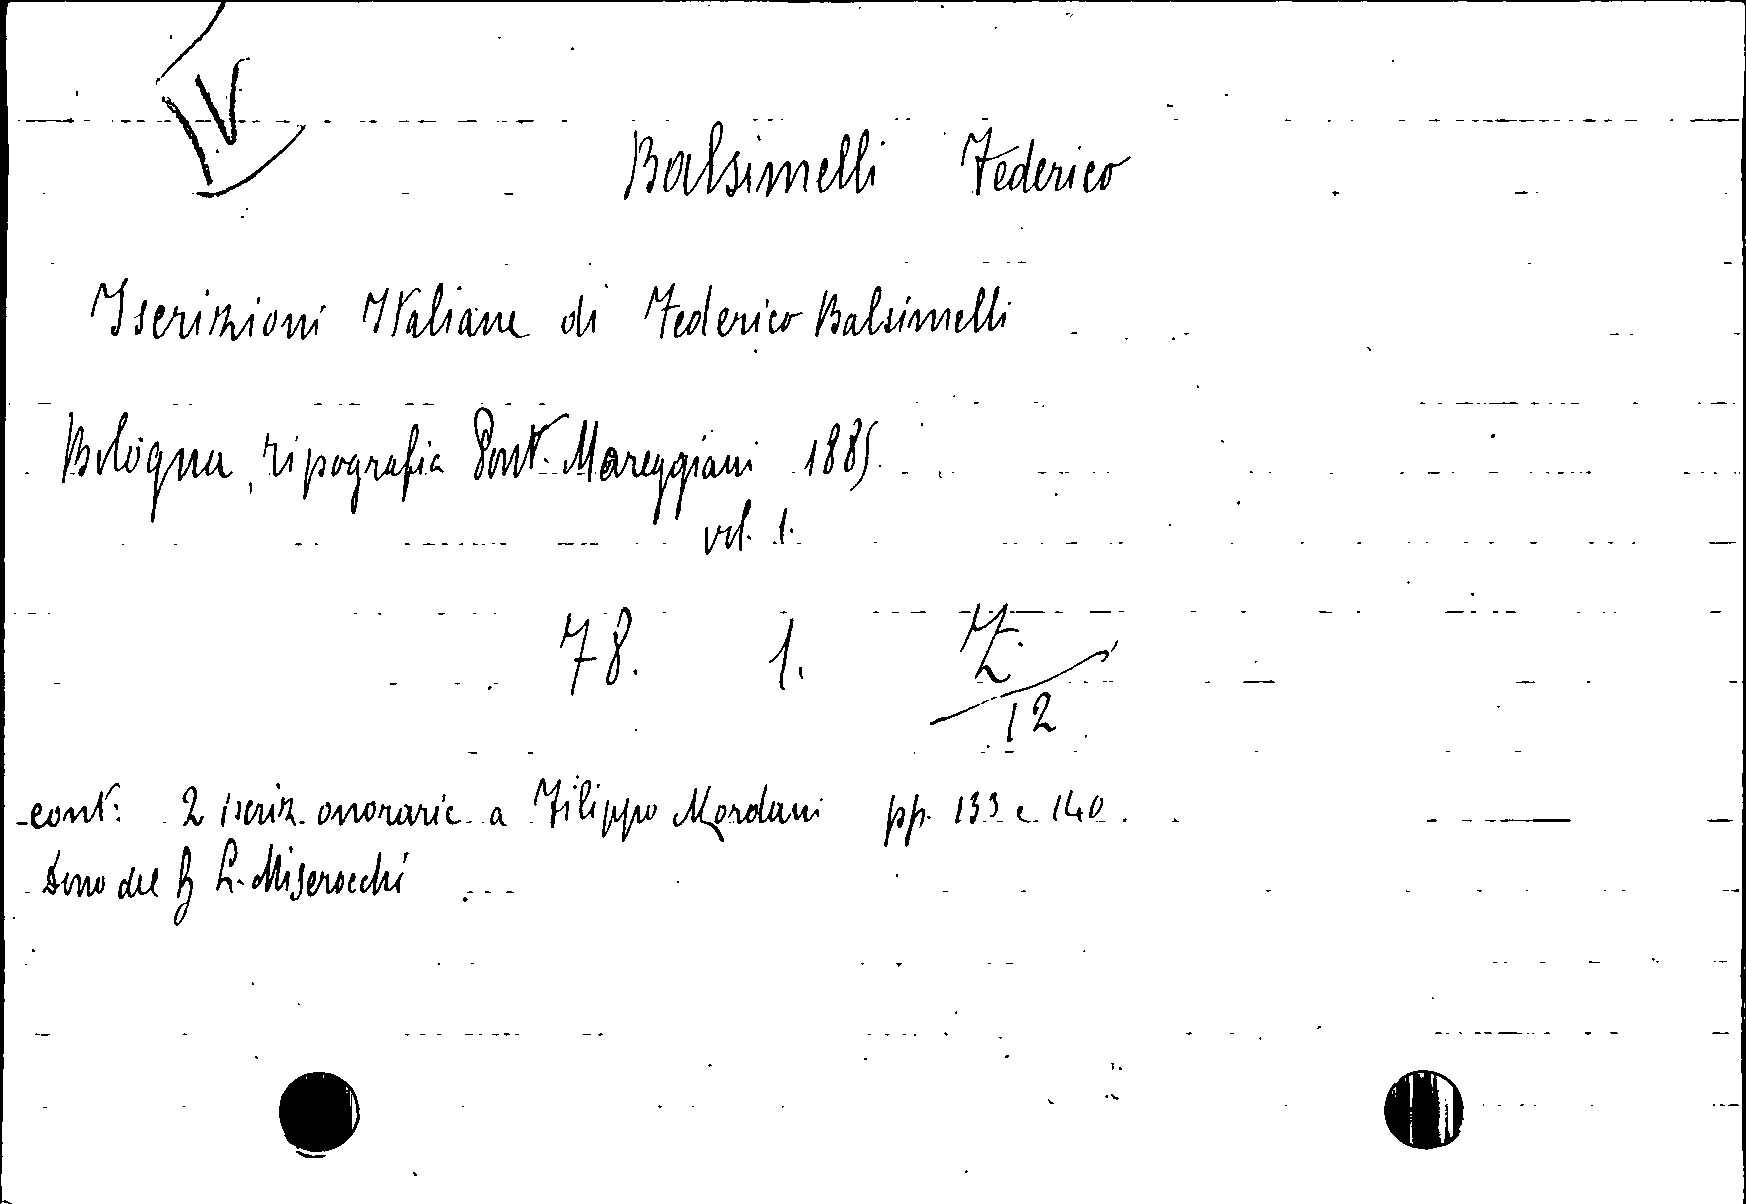 IV
Balsimelli Federico
Iscrizioni Italiane di Federico Balsimelli
Bologna, tipografia Pont. Mareggiani 1885
vol. 1.
78. 1. Z.
12
cont: 2 iscriz. onorarie a Filippo Mordani pp. 133 e 140.
Dono del L. Miserocchi